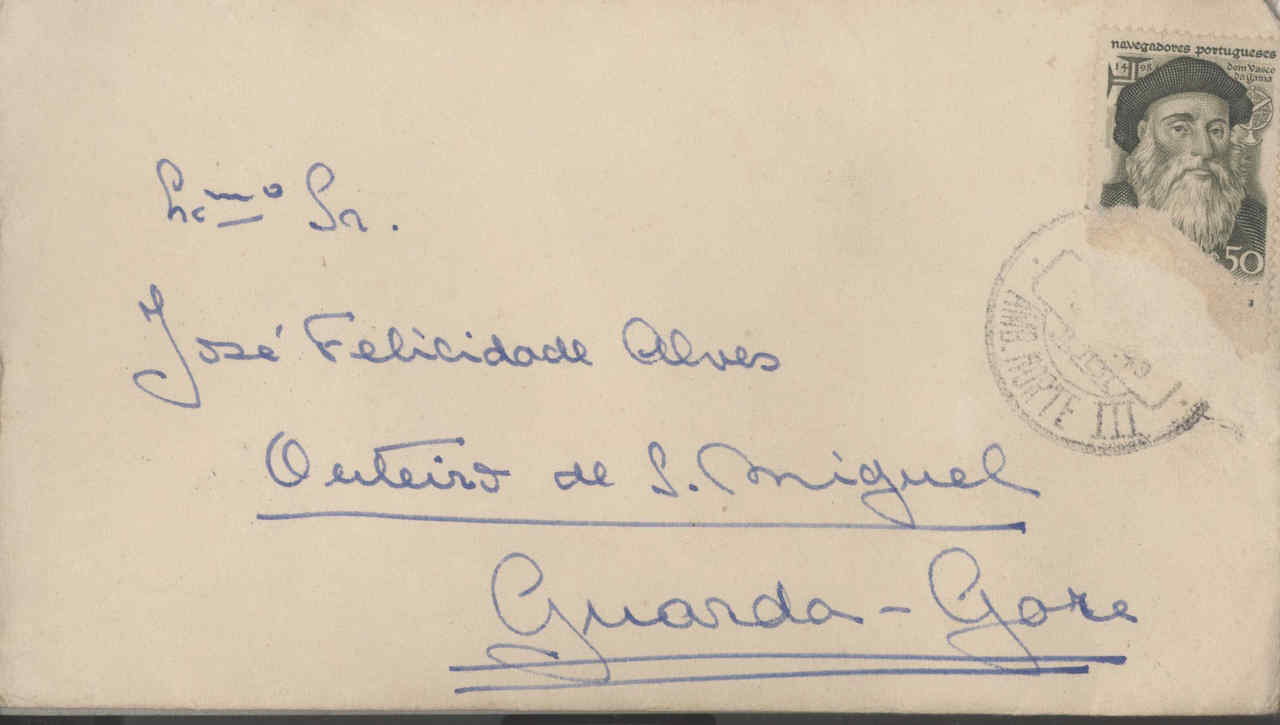 navegadores portugueses
1498 dom Vasco
da Gama
$50
Sr.
José Felicidade Alves
Outeiro de S. Miguel
Guarda-Gare
AMB. NORTE III